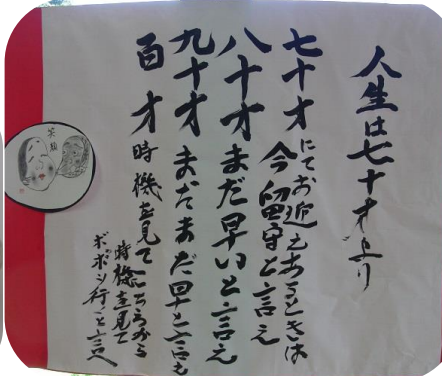 人生は七十才より
七十才にてお迎えあるときは
今留守と言え
八十才まだ早いと言え
九十才まだまだ早と言も
百才時機を見て
時機を見て
ボツボツ行くと言え
笑顔